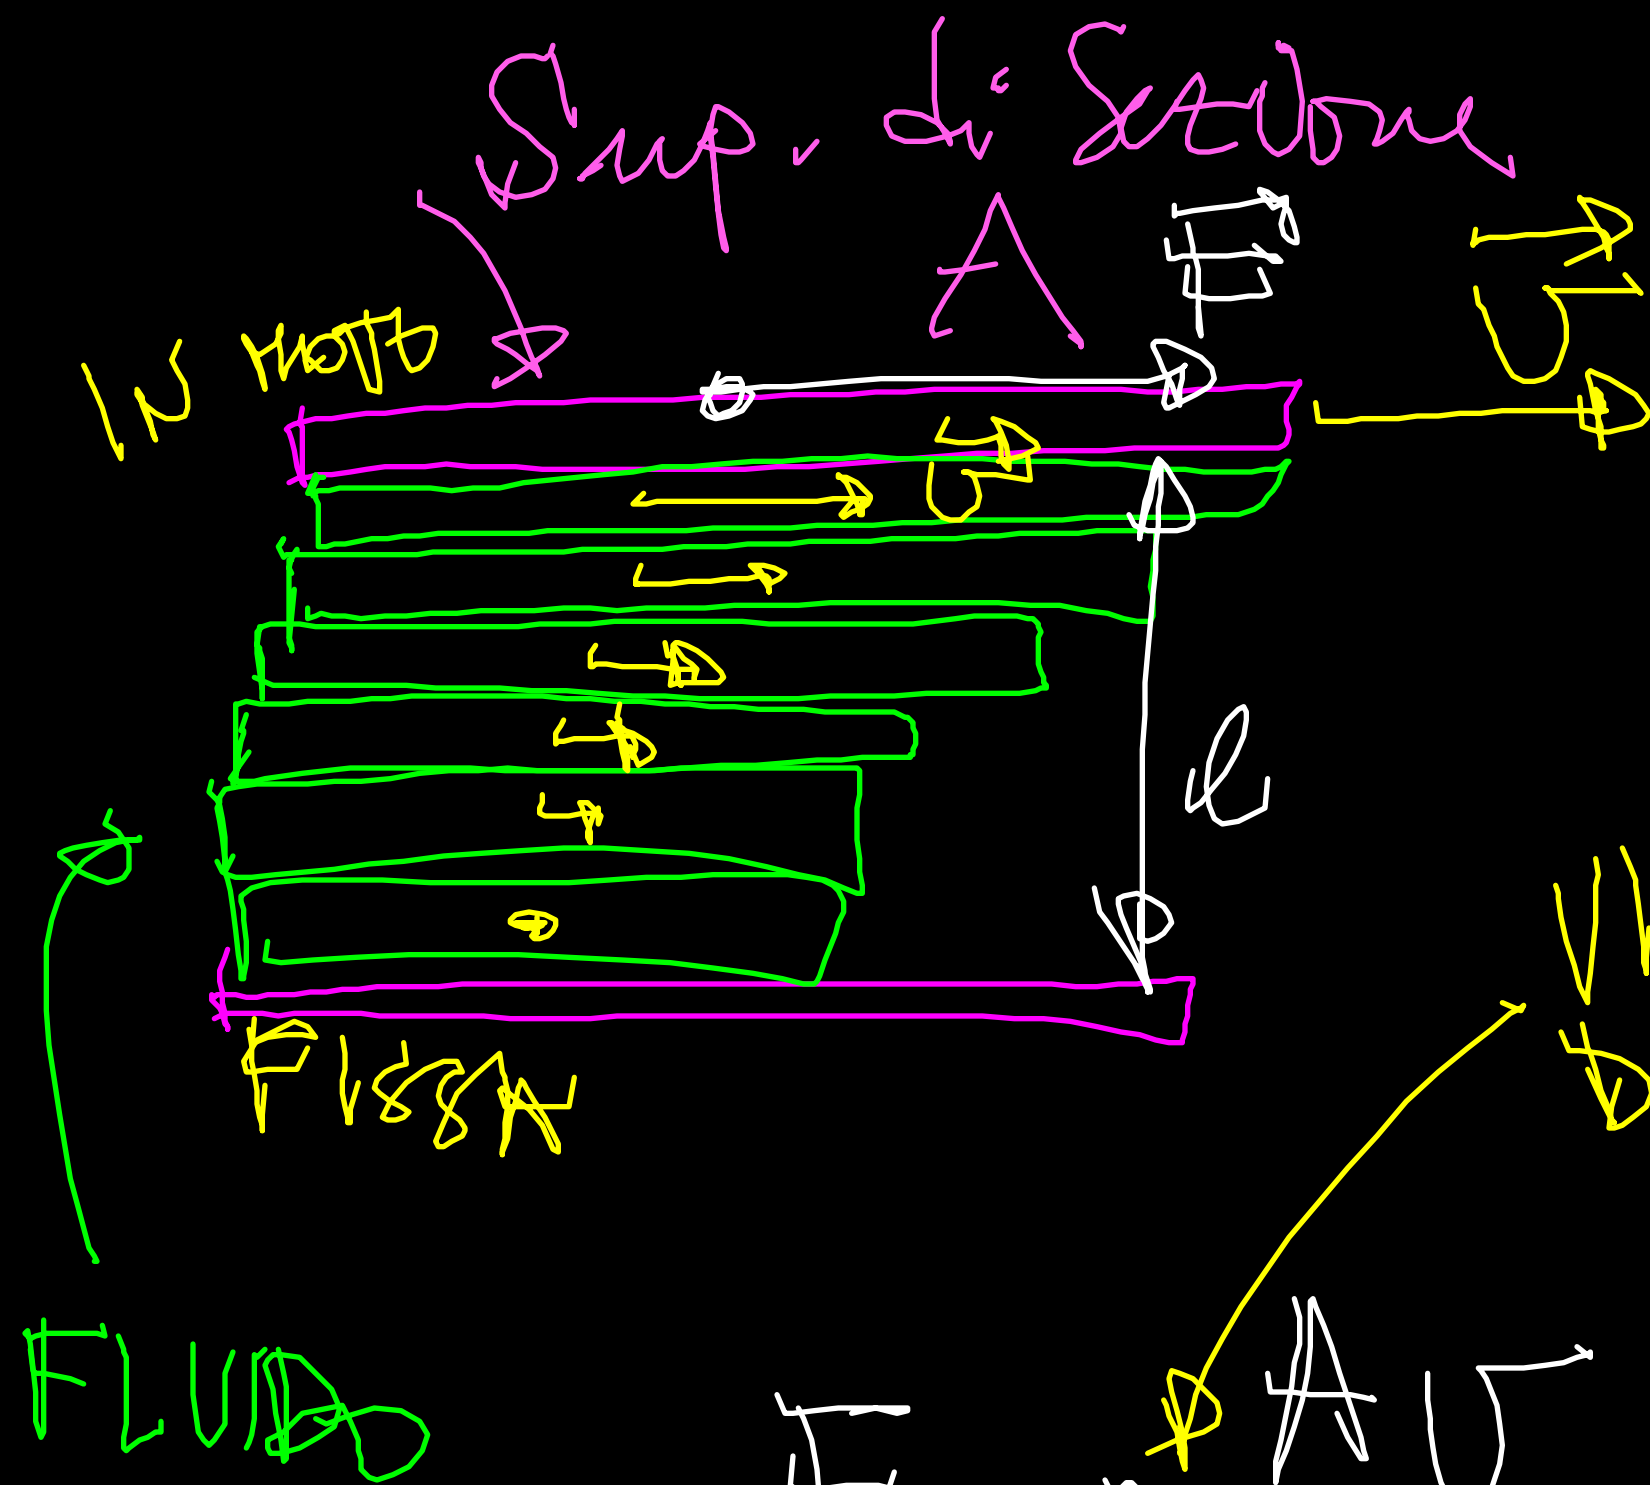 Sup. di Sezione
A
F
v
IN MOTO
v
l
FISSA
FLUIDO
F
A v